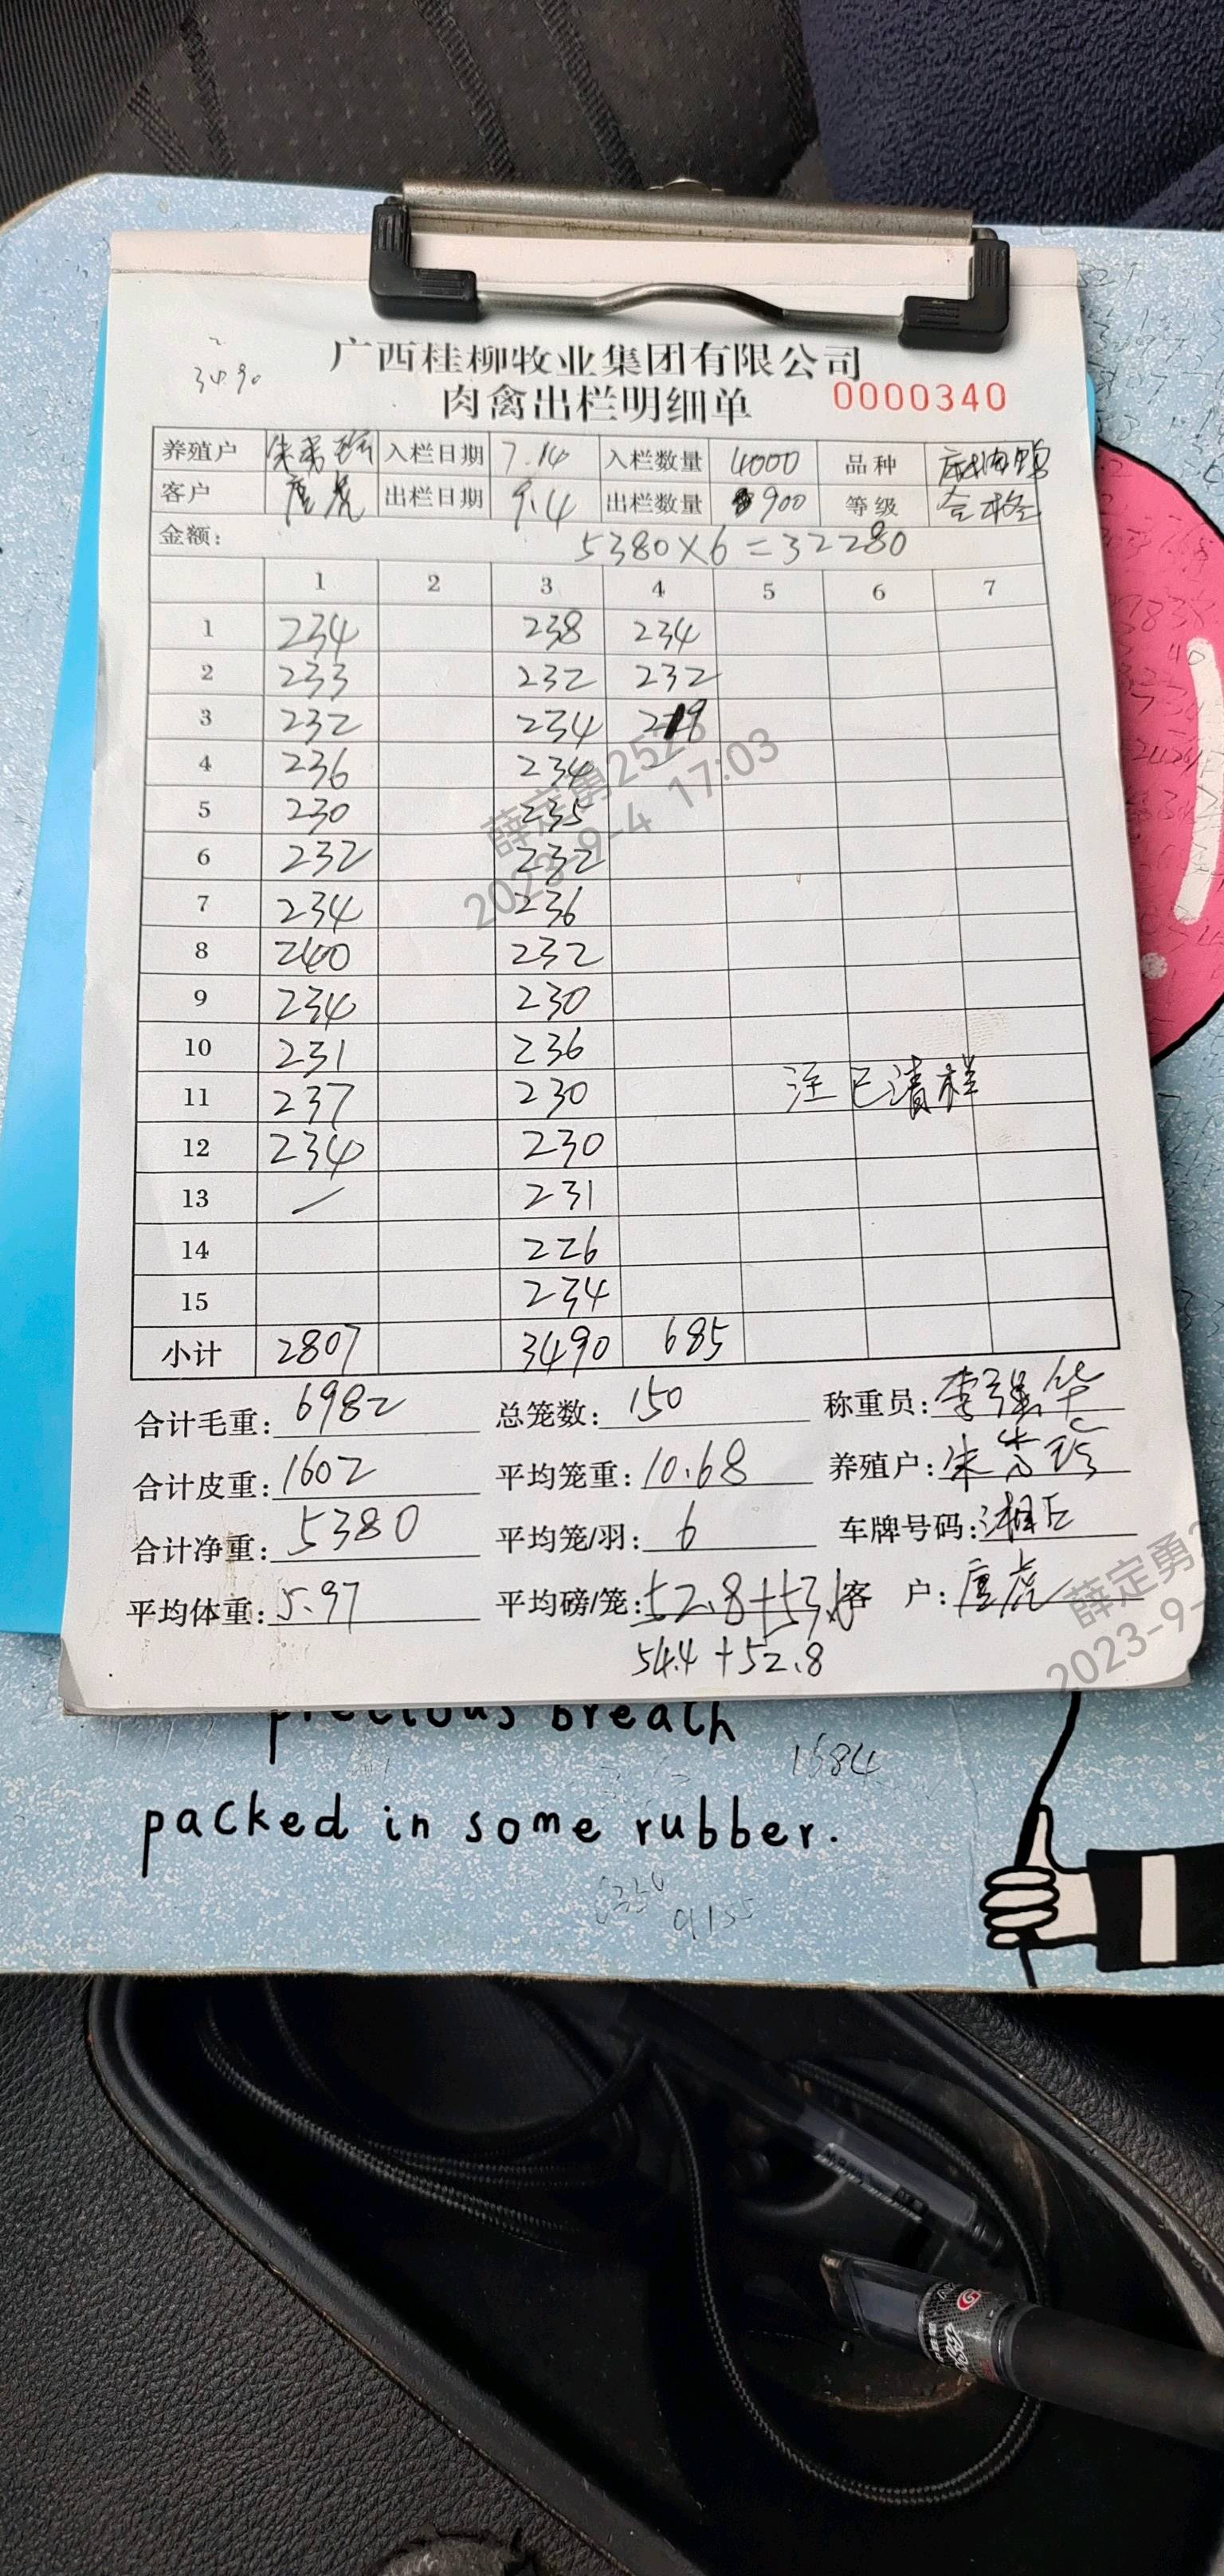 3490
广西桂柳牧业集团有限公司
肉禽出栏明细单 0000340
养殖户 入栏日期 7.14 入栏数量 4000 品种
客户 唐虎 出栏日期 9.4 出栏数量 900 等级 合格
金额: 5380×6=32280
1 2 3 4 5 6 7
1 234 238 234
2 233 232 232
3 232 234 219
4 236 234
5 230 235
6 232 232
7 234 236
8 240 232
9 234 230
10 231 236
11 237 230 注已清样
12 234 230
13 / 231
14 226
15 234
小计 2807 3490 685
合计毛重: 6982 总笼数: 150 称重员: 李强华
合计皮重: 1602 平均笼重: 10.68 养殖户: 朱
合计净重: 5380 平均笼/羽: 6 车牌号码: 湘
平均体重: 5.97 平均磅/笼: 52.8+53. 客 户: 唐虎
54.4+52.8
薛定勇2528
2023-9-4 17:03
薛定勇
2023-9-
precious breath
1684
packed in some rubber.
9155